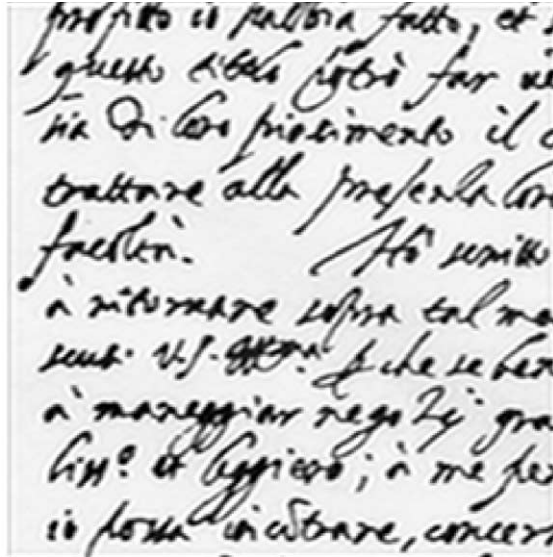 profitto io l'abbia fatto, et
questo libro potrò far
sia di loro piacimento il
trattare alla presenza loro
facoltà. Hò scritto
à ritornare sopra tal
scus. V.S. che se ben
à maneggiar negozij gra
liss.º et leggiero; à me per
io possa incōtrare, concern